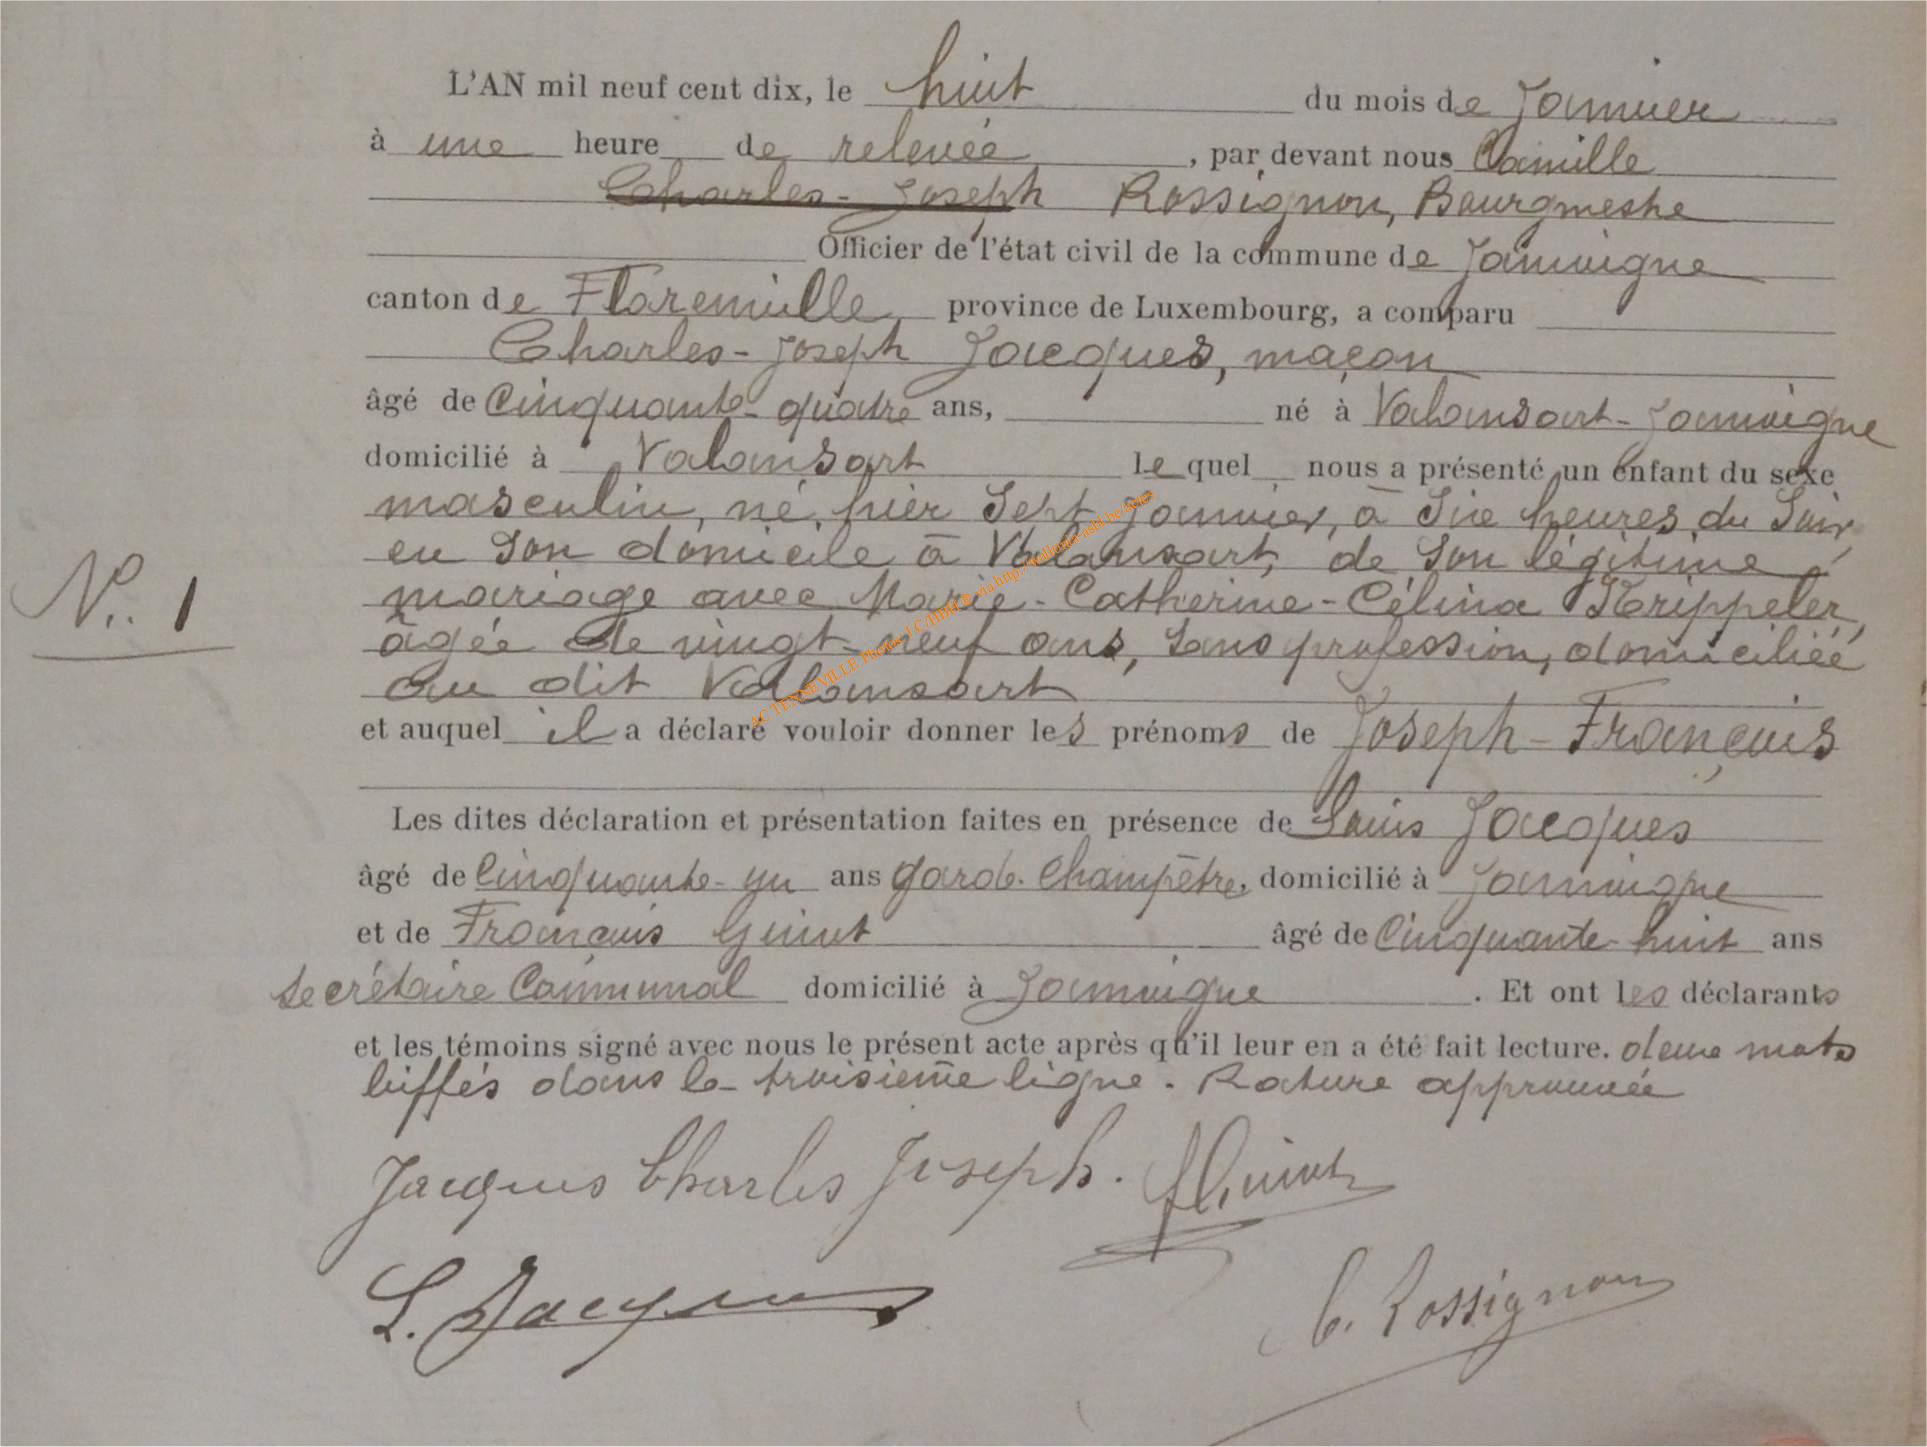 L'AN mil neuf cent dix, le huit du mois de Janvier
à une heure de relevée, par devant nous Camille
Charles-Joseph Rossignon, Bourgmestre
Officier de l'état civil de la commune de Jamoigne
canton de Florenville province de Luxembourg, a comparu
Charles-Joseph Jacques, maçon
âgé de Cinquante-quatre ans, né à Valansart-Jamoigne
domicilié à Valansart lequel nous a présenté un enfant du sexe
masculin, né, hier Sept Janvier, à Six heures du Soir,
en Son domicile à Valansart, de Son légitime
mariage avec Marie-Catherine-Célina Krippeler,
N°. 1
âgée de vingt-neuf ans, Sans profession, domiciliée
au dit Valansart
AC TENNEVILLE Photos J C/HBLE via http://
et auquel il a déclaré vouloir donner les prénoms de Joseph-François
Les dites déclaration et présentation faites en présence de Louis Jacques
âgé de Cinquante-un ans garde-Champêtre, domicilié à Jamoigne
et de François Guiot âgé de Cinquante-huit ans
Secrétaire Communal domicilié à Jamoigne. Et ont les déclarants
et les témoins signé avec nous le présent acte après qu'il leur en a été fait lecture. deux mots
biffés dans la troisième ligne. Rature approuvée
Jacques Charles Joseph.
L. Jacques
C. Rossignon